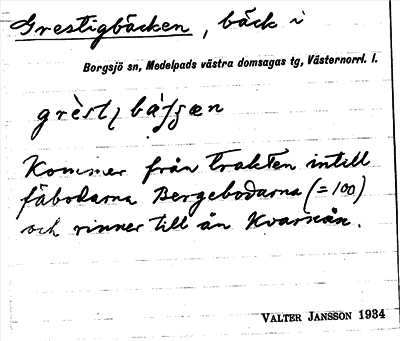 Grestigbäcken, bäck i
Borgsjö sn, Medelpads västra domsagas tg, Västernorrl. l.
Kommer från trakten intill
fäbodarna Bergebodarna (=100)
och rinner till ån Kvarnån.
VALTER JANSSON 1934